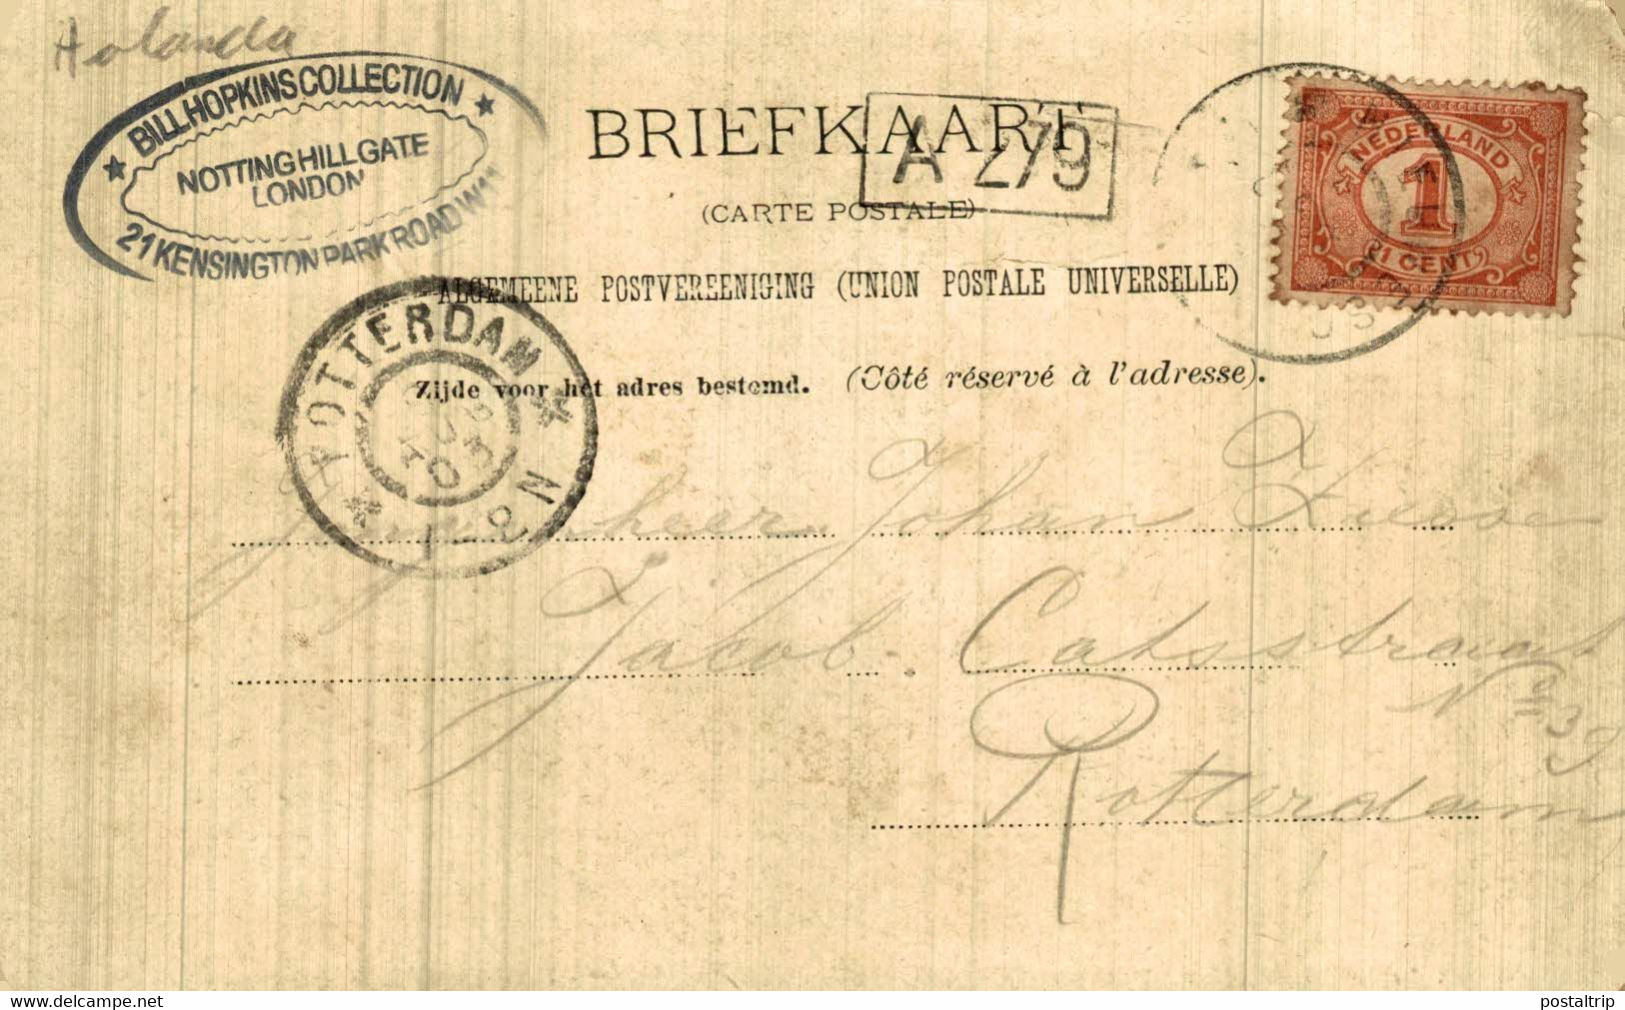 Holanda
BILL HOPKINS COLLECTION
NOTTING HILL GATE
LONDON
21 KENSINGTON PARK ROAD W11
BRIEFKAART
A 279
(CARTE POSTALE)
ALGEMEENE POSTVEREENIGING (UNION POSTALE UNIVERSELLE)
Zijde voor het adres bestemd. (Côté réservé à l'adresse).
NEDERLAND
1
1 CENT
ROTTERDAM
1-2 N
heer Johan
Jacob. Catsstraat
No 39
Rotterdam
delcampe.net
postaltrip